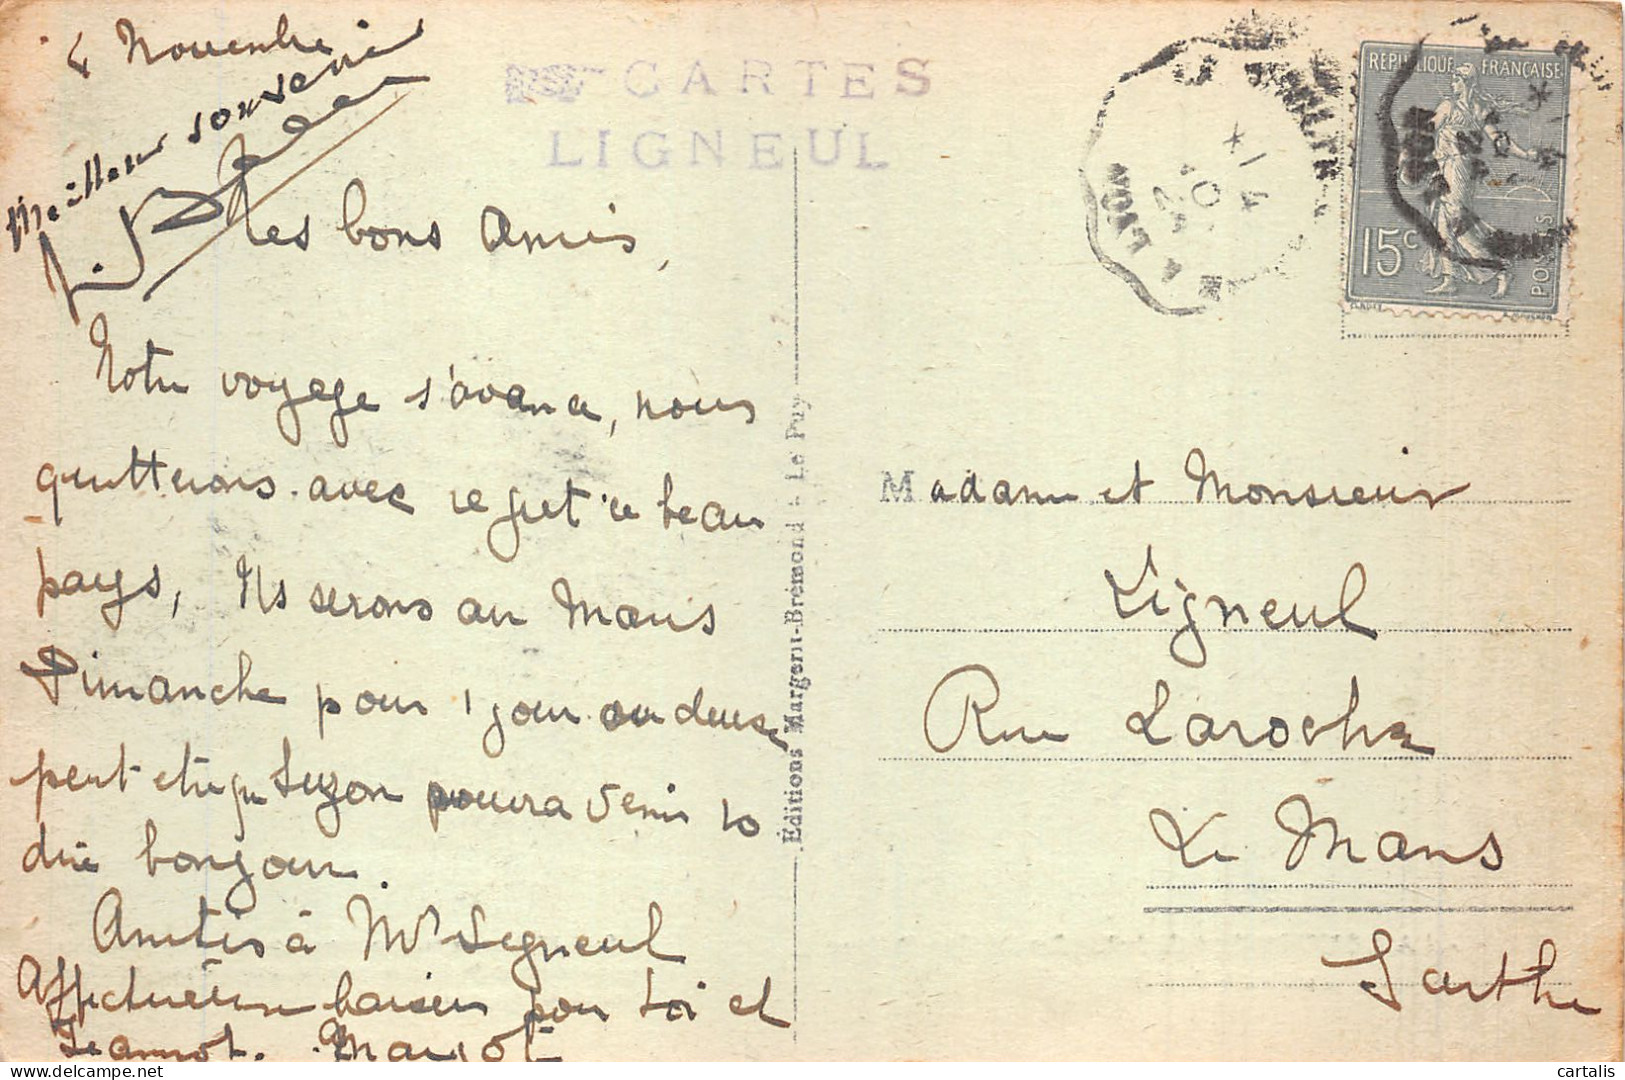 4 Novembre
Meilleur souvenir
CARTES
LIGNEUL
Mes bons Amis,
Notre voyage s'avance, nous
quitterons avec regret ce beau
pays, Ns serons au Mans
Dimanche pour 1 jour ou deux
peut etre que Suzon pourra venir vs
dire bonjour.
Amitiés à Mr Ligneul
Affectueux baisers pour toi et
Jeannot. Margot
Éditions Margerit-Brémond - Le Puy
RÉPUBLIQUE FRANÇAISE
15c
POSTES
Madame et Monsieur
Ligneul
Rue Laroche
Le Mans
Sarthe
delcampe.net
cartalis